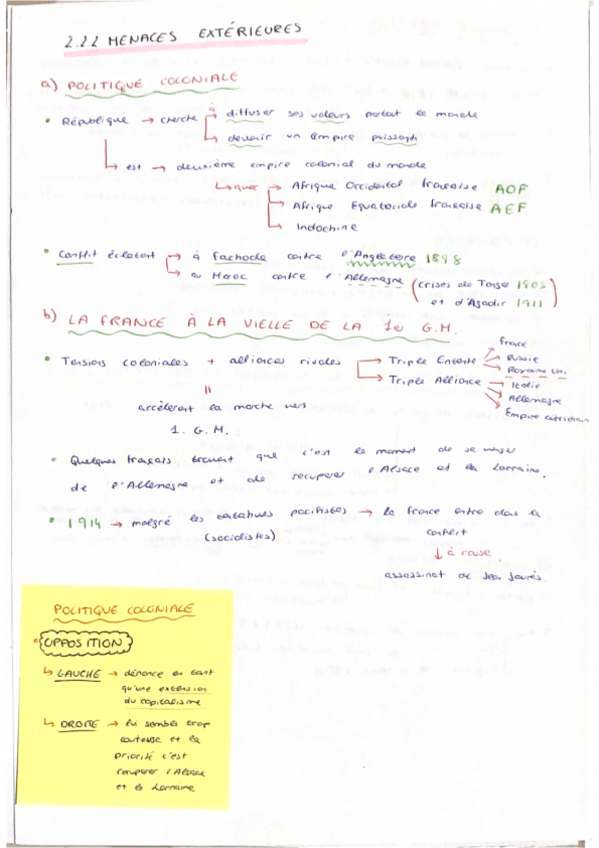 2.2.2 MENACES EXTÉRIEURES
a) POLITIQUE COLONIALE
• République → cherche → à diffuser ses valeurs partout le monde
→ devenir un Empire puissant
→ est → deuxième empire colonial du monde
→ avec → Afrique Occidental française AOF
→ Afrique Equatoriale française AEF
→ Indochine
• Conflit éclatant → à Fachoda contre l'Angleterre 1898
→ au Maroc contre l'Allemagne (crises de Tanger 1905
et d'Agadir 1911)
b) LA FRANCE À LA VIELLE DE LA 1er G.M.
• Tensions coloniales + alliances rivales → Triple Entente → France
→ Russie
→ Royaume Uni
→ Triple Alliance → Italie
→ Allemagne
→ Empire
=
accélèrent la marche vers
1. G. M.
• Quelques français que c'est le moment de se venger
de l'Allemagne et de recuperer l'Alsace et la Lorraine.
• 1914 → malgré les tentatives pacifistes → la france entre dans la
(socialistes) conflit
↓ à cause
assassinat de Jean Jaurès.
POLITIQUE COLONIALE
• OPPOSITION
↳ GAUCHE → dénonce en tant
qu'une extension
du capitalisme
↳ DROITE → lui semble trop
couteuse et la
priorité c'est
recuperer l'Alsace
et la Lorraine